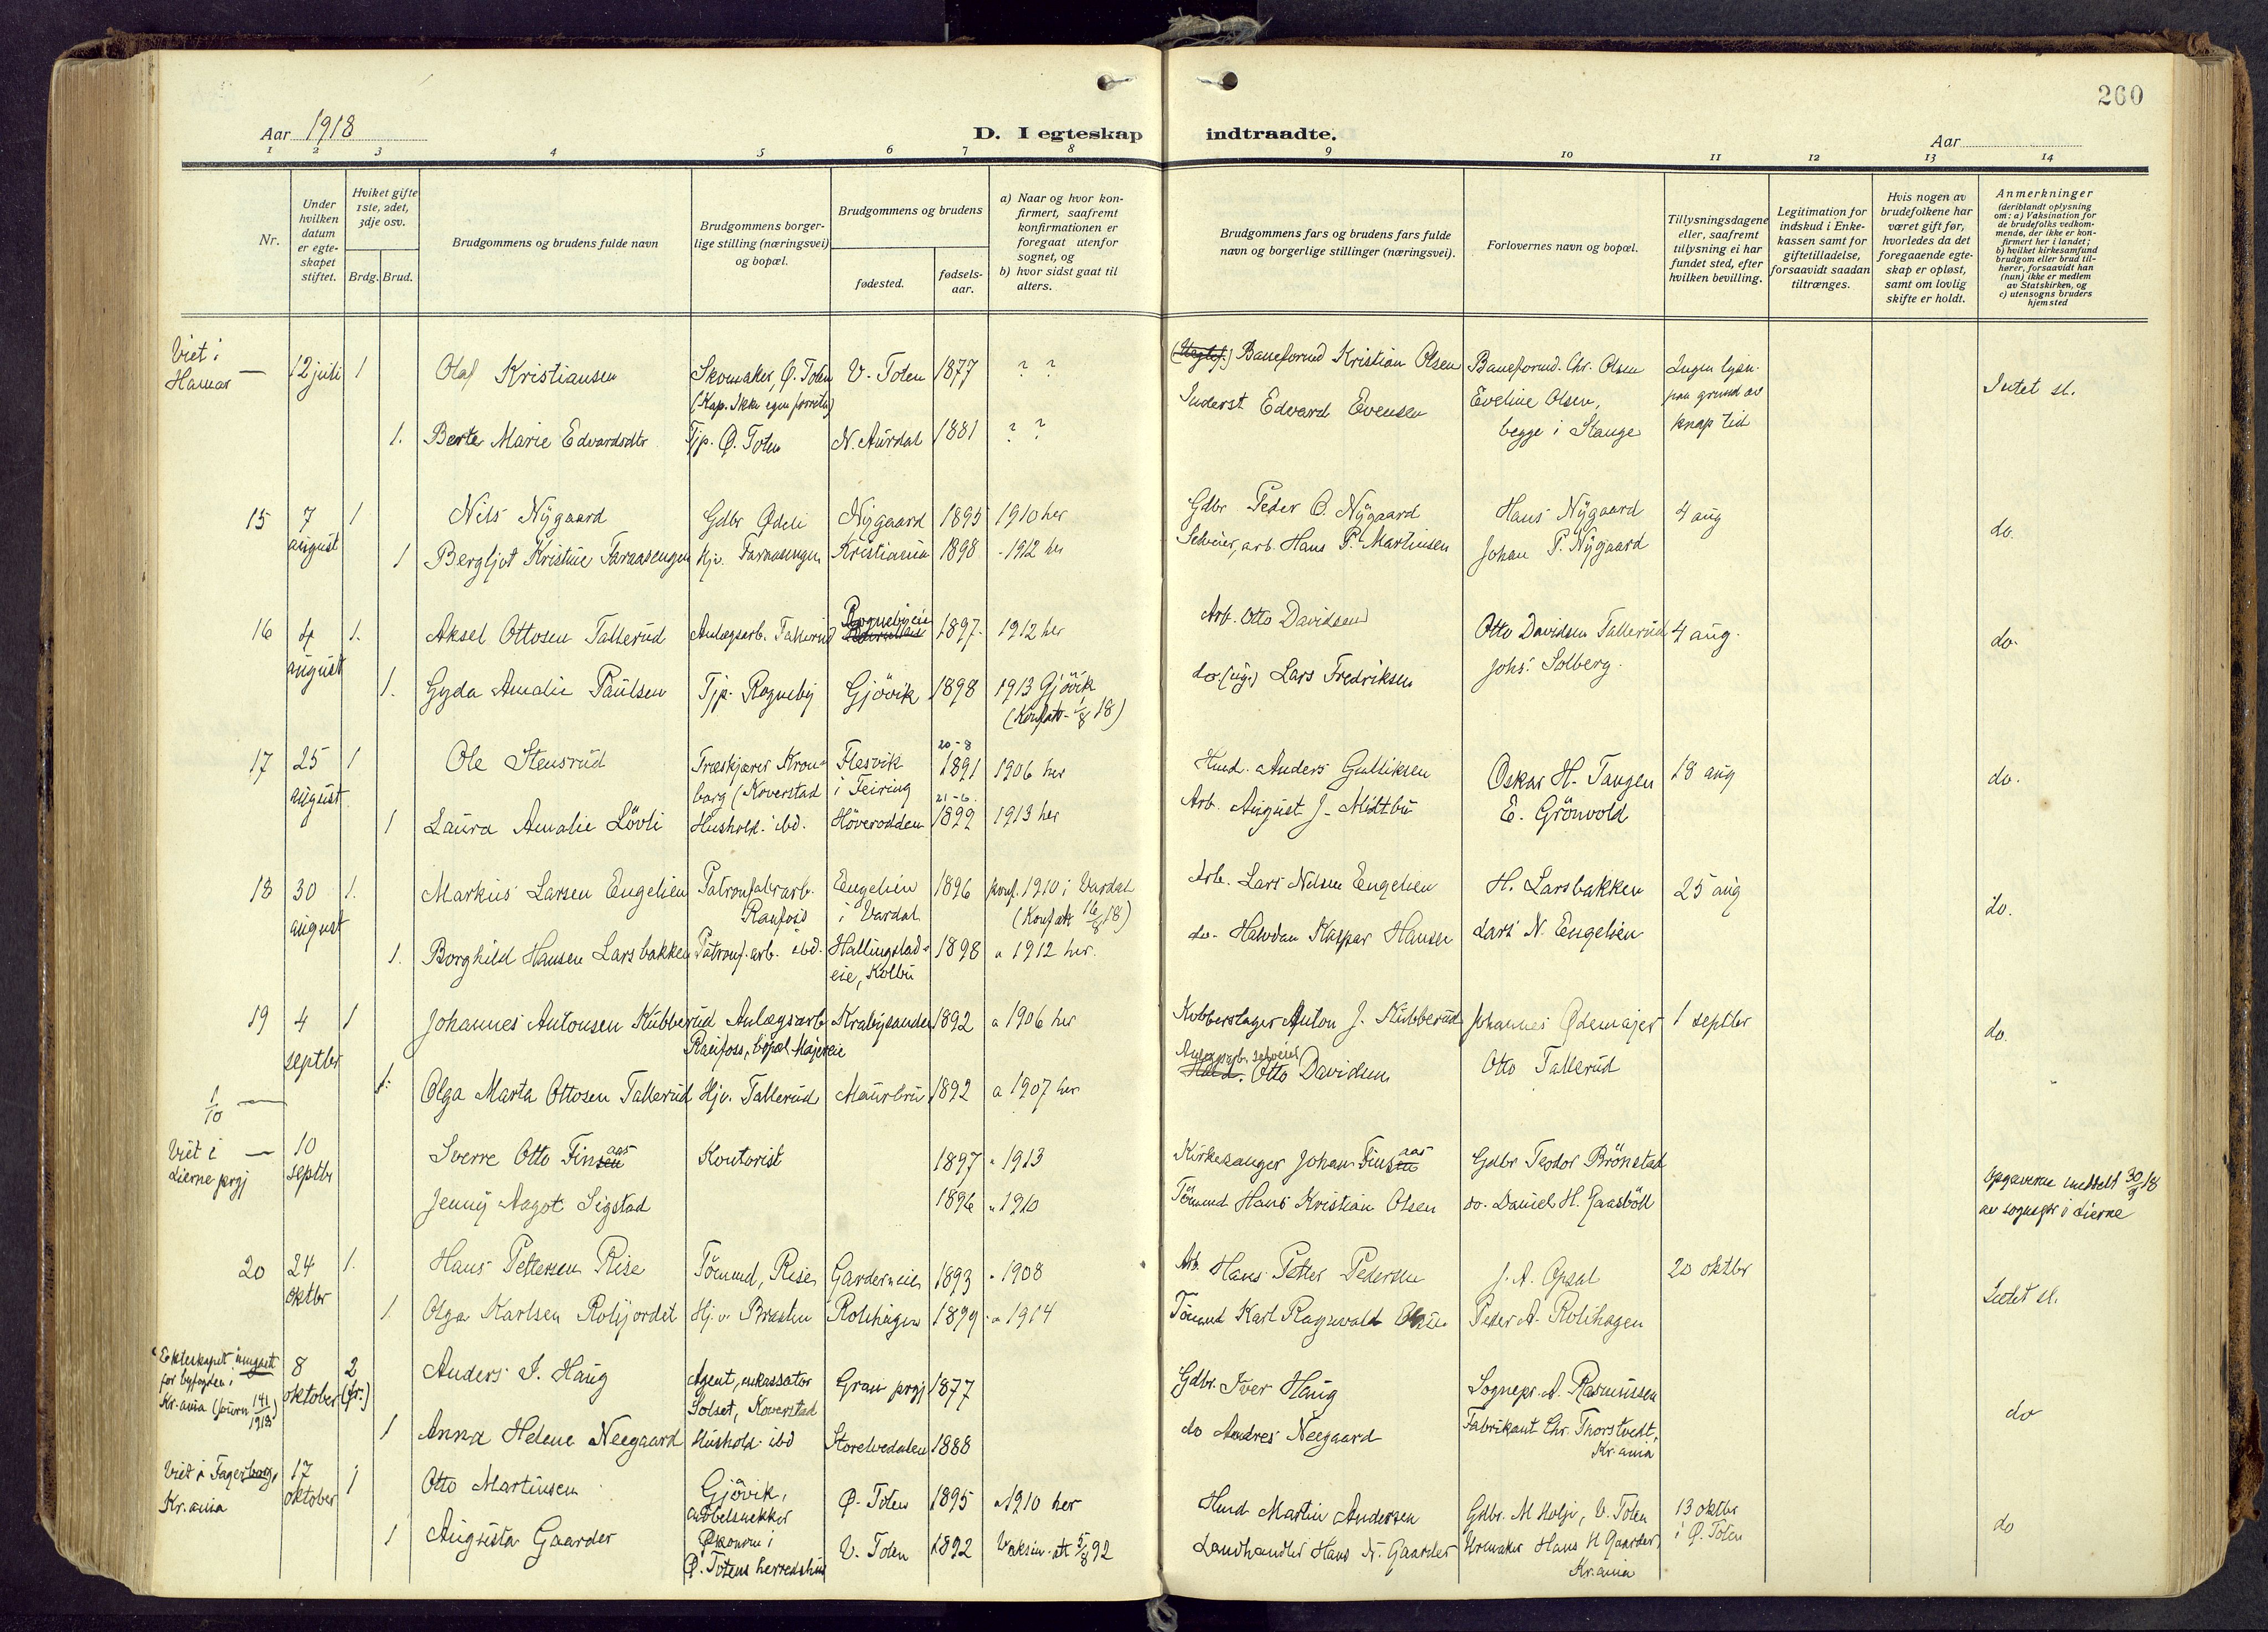 260
Aar 1918
D. I egteskap indtraadte.
Aar
1 2 3 4 5 6 7 8 9 10 11 12 13 14
Nr.
Under hvilken datum er egte-skapet stiftet.
Hvilket gifte 1ste, 2det, 3dje osv.
Brdg. Brud.
Brudgommens og brudens fulde navn
Brudgommens borger-lige stilling (næringsvei) og bopæl.
Brudgommens og brudens
fødested.
fødsels-aar.
a) Naar og hvor kon-firmert, saafremt konfirmationen er foregaat utenfor sognet, og
b) hvor sidst gaat til alters.
Brudgommens fars og brudens fars fulde navn og borgerlige stillinger (næringsvei).
Forlovernes navn og bopæl.
Tillysningsdagene eller, saafremt tillysning ei har fundet sted, efter hvilken bevilling.
Legitimation for indskud i Enke-kassen samt for giftetilladelse, forsaavidt saadan tiltrænges.
Hvis nogen av brudefolkene har været gift før, hvorledes da det foregaaende egte-skap er opløst, samt om lovlig skifte er holdt.
Anmerkninger
(deriblandt oplysning om: a) Vaksination for de brudefolks vedkom-mende, der ikke er kon-firmert her i landet; b) hvilket kirkesamfund brudgom eller brud til-hører, forsaavidt han (hun) ikke er medlem av Statskirken, og c) utensogns bruders hjemsted
Viet i Hamar — 12 juli 1 Olaf Kristiansen Skomaker Ø. Toten V. Toten 1877 ? ? Baneformd Kristian Olsen Baneformd. Chr. Olsen Ingen lysn. paa grund av knap tid Intet sl.
1. Berte Marie Edvardsdtr Tjp. Ø. Toten N. Aurdal 1881 ? ? Inderst Edvard Evensen Eveline Olsen, begge i Stange
15 7 august 1 Nils Nÿgaard Gdbr Ødeli Nygaard 1895 1910 her Gdbr Peder O. Nÿgaard Hans Nÿgaard 4 aug do.
1 Bergljot Kristine Faraasengen Hjv. Faraasengen Kristiania 1898 - 1912 her Selveier, arb. Hans P. Martinsen Johan P. Nÿgaard
16 4 august 1. Aksel Ottosen Tallerud Anlægsarb. Tallerud Rognebyeie 1897 1912 her Arb. Otto Davidsen Otto Davidsen Tallerud 4 aug. do.
1. Gyda Amalie Paulsen Tjp. Rogneby Gjövik 1898 1913 Gjövik do (ug.) Lars Fredriksen Johs. Solberg.
17 25 august 1 Ole Stensrud Træskjærer Kron-borg (Koverstad Flesvik i Feiring 20-8 1891 1906 her Hmd. Anders Gulliksen Oskar H. Tangen 18 aug do.
1 Laura Amalie Lövli Hushold. ibd. Höverodden 21-6. 1899 1913 her Arb. August J. Midtbu E. Grönvold
18 30 august 1. Markus Larsen Engelien Patronfabrarb. Raufoss Engelien i Vardal 1896 konf. 1910 i Vardal Arb. Lars Nilsen Engelien H. Larsbakken 25 aug do.
1. Borghild Hansen Larsbakken Patronf. arb. ibd. Hallingstad-eie, Kolbu 1898 " 1912 her. do. Halvdan Kaspar Hansen Lars N. Engelien
19 4 septbr 1 Johannes Antonsen Kubberud Anlægsarb Raufoss, bopæl Majereie Krabysanden 1892 " 1906 her Kobberslager Anton J. Kubberud Johannes Ødemajer 1 septbr do.
1/10 — 1. Olga Marta Ottosen Tallerud Hjv. Tallerud Maurbru 1892 " 1907 her Anlægsarb. selveier Otto Davidsen Otto Tallerud
Viet i Lierne prgj — 10 septbr Sverre Otto Finsaas Kontorist 1897 " 1913 Kirkesanger Johan Finsaas Gdbr Teodor Brönstad Opgaverne meddelt 30/9 18 av sognepr i Lierne
Jenny Aagot Sigstad 1896 " 1910 Tömmd Hans Kristian Olsen do. Daniel H. Gaasböll
20 24 oktbr 1. Hans Pettersen Rise Tömmd, Rise Garderneie 1893 " 1908 Arb. Hans Petter Pedersen J. A. Opsal 20 oktbr Intet sl.
1. Olga Karlsen Rolijordet Hj. v. Rolihagen 1899 " 1914 Tömmd Karl Ragnvald Peder A. Rolihagen
Ekteskapet inngaat for byfogden i Kr.ania (journ 141/1918) 8 oktober 2 (fr.) Anders I. Haug Agent, inkassator Solset, Koverstad Gran prgj 1877 Gdbr. Iver Haug Sognepr. A. Rasmussen do
1 Anna Helene Neegaard Hushold. ibd Storelvedalen 1888 do Andres Neegaard Fabrikant Chr. Thorstvedt, Kr.ania
Viet i Fagerborg, Kr.ania 17 oktober 1 Otto Martinsen Gjövik, möbelsnekker Ø. Toten 1895 " 1910 her Hmd Martin Andersen Gdbr. M. V. Toten 13 oktbr i Ø. Toten do
1 Augusta Gaarder Økonom i Ø. Totens herredshus V. Toten 1892 Vaksin. att 5/8 92 Landhandler Hans N. Gaarder Urmaker Hans H Gaarder, Kr.ania